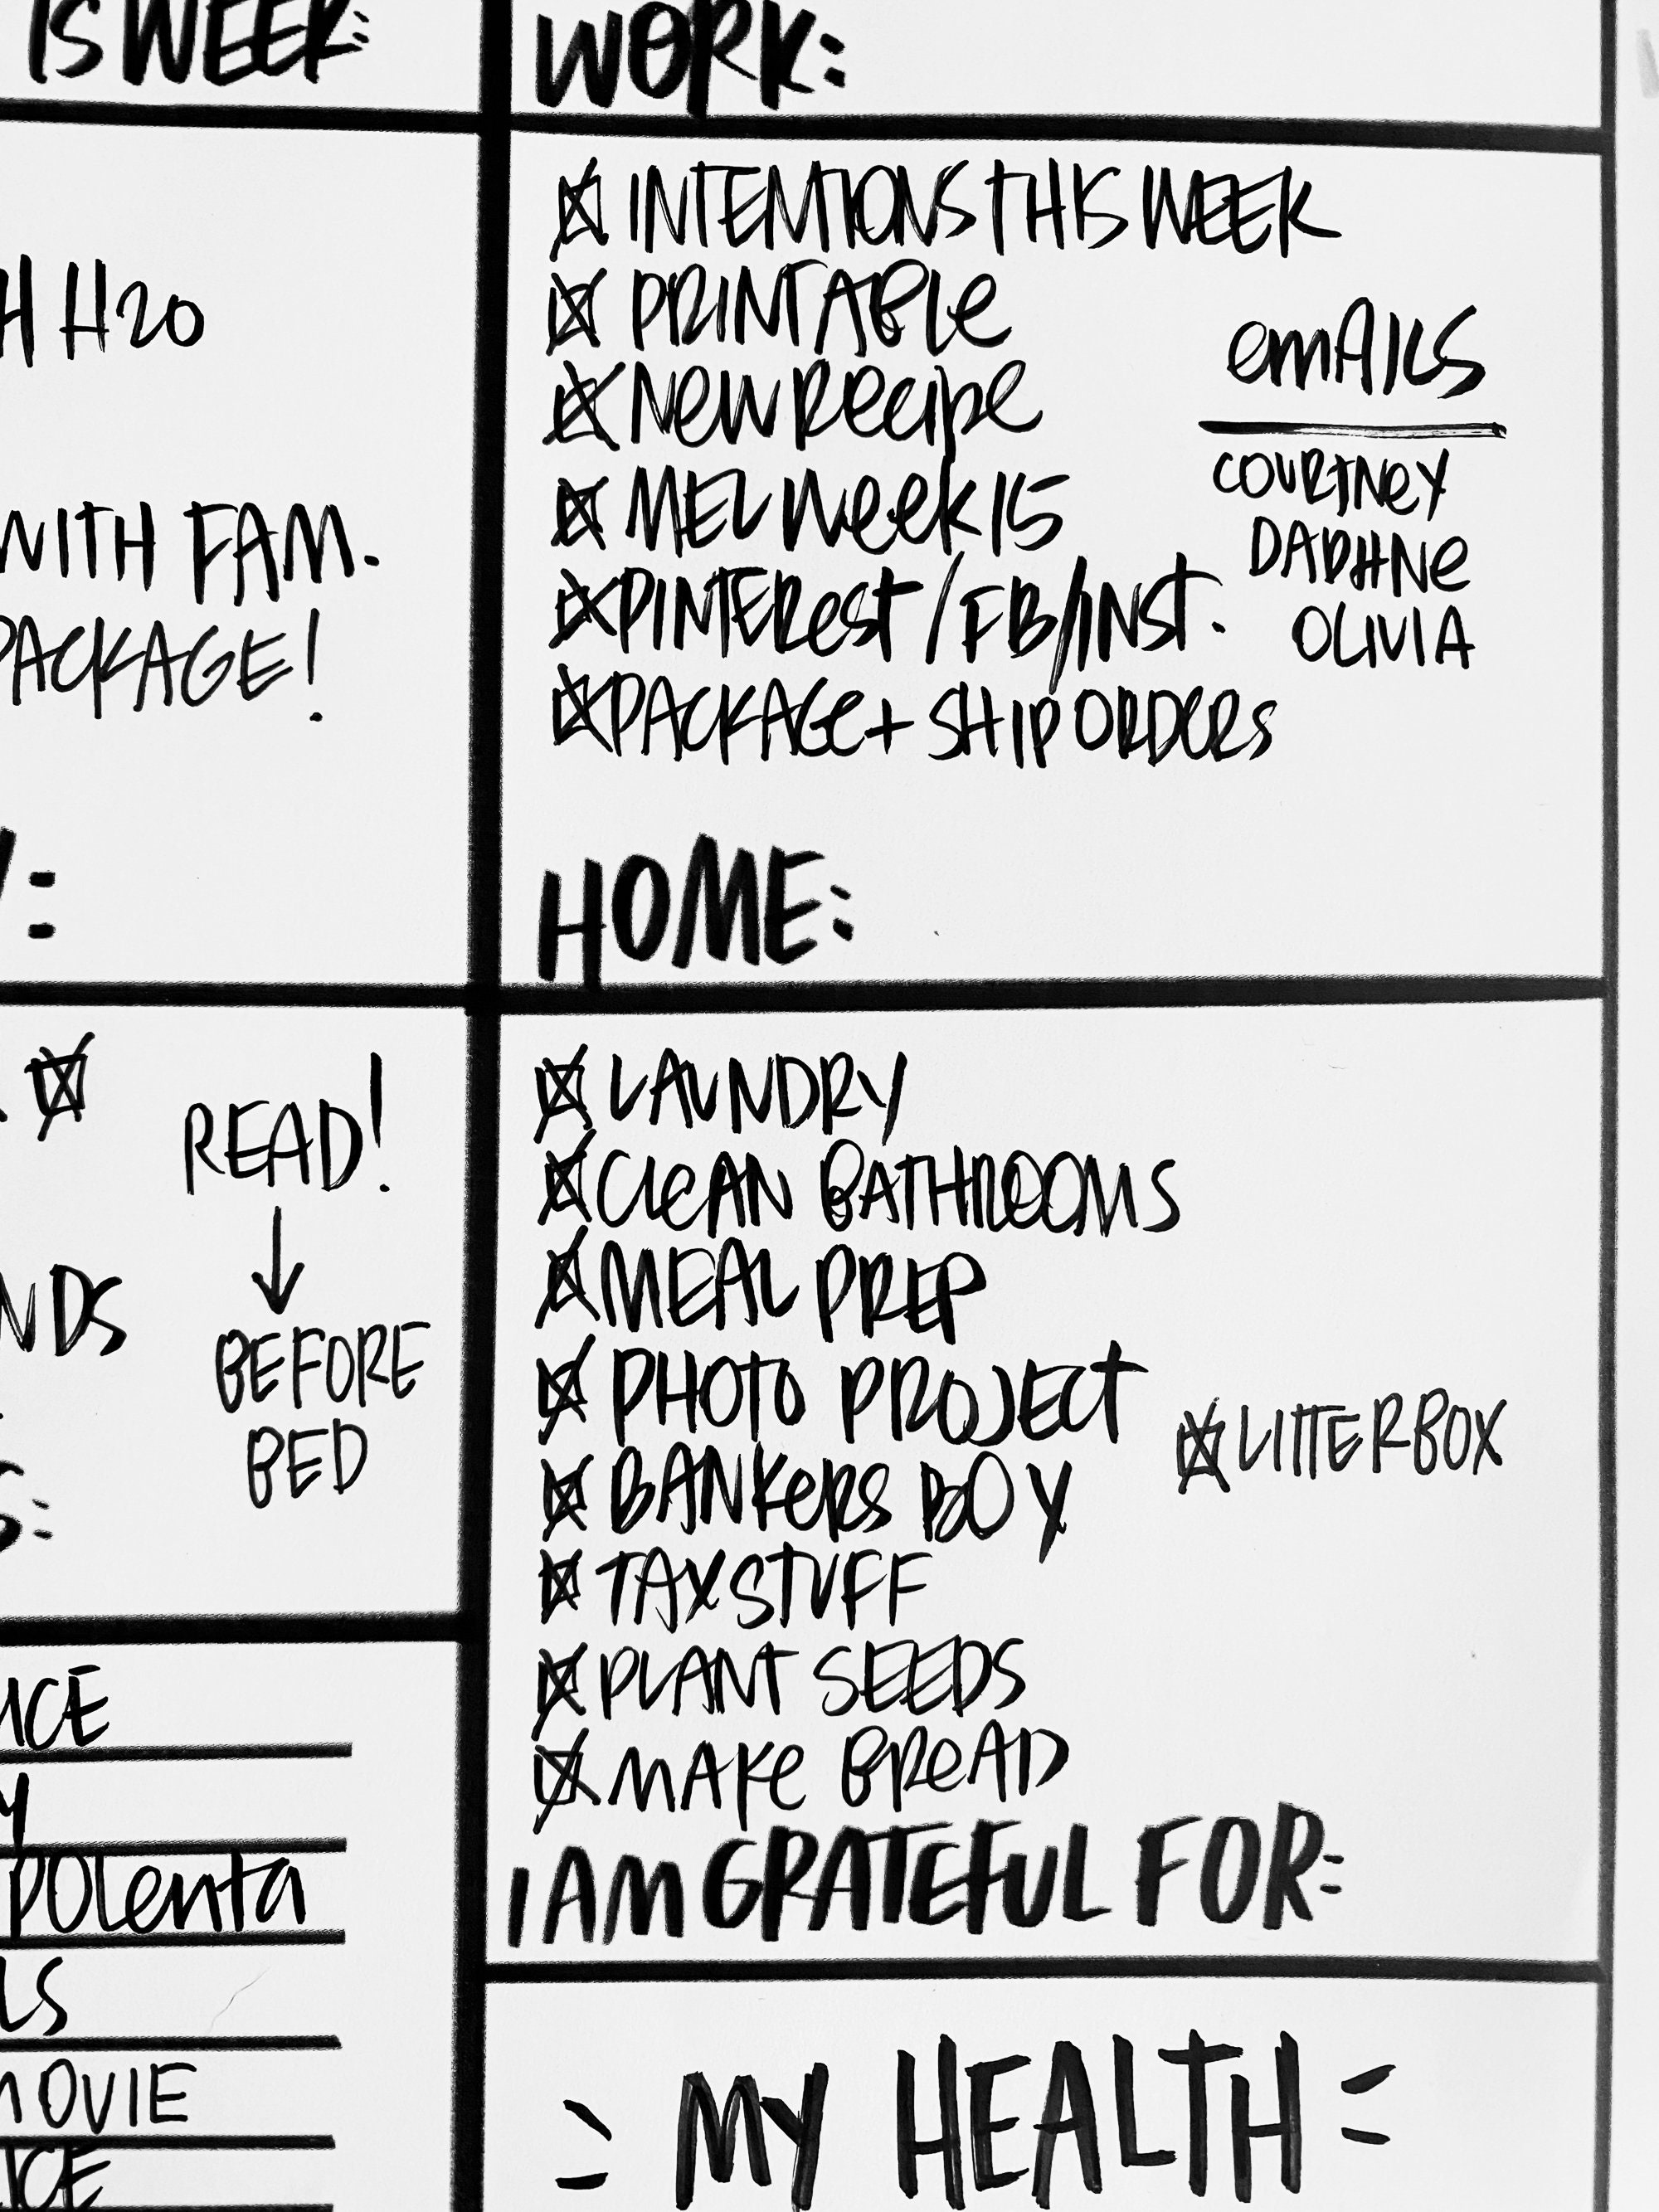 IS WEEK:
H H2O
WITH FAM.
PACKAGE!
:
READ!
↓
BEFORE
BED
NDS
S:
ICE
Y
POLENTA
LS
MOVIE
ICE
WORK:
INTENTIONS THIS WEEK
PRINTABLE
NEW RECIPE
MEL WEEK 15
PINTEREST / FB / INST.
PACKAGE + SHIP ORDERS
EMAILS
COURTNEY
DAPHNE
OLIVIA
HOME:
LAUNDRY
CLEAN BATHROOMS
MEAL PREP
PHOTO PROJECT
BANKERS BOX
TAX STUFF
PLANT SEEDS
MAKE BREAD
LITTERBOX
I AM GRATEFUL FOR:
MY HEALTH